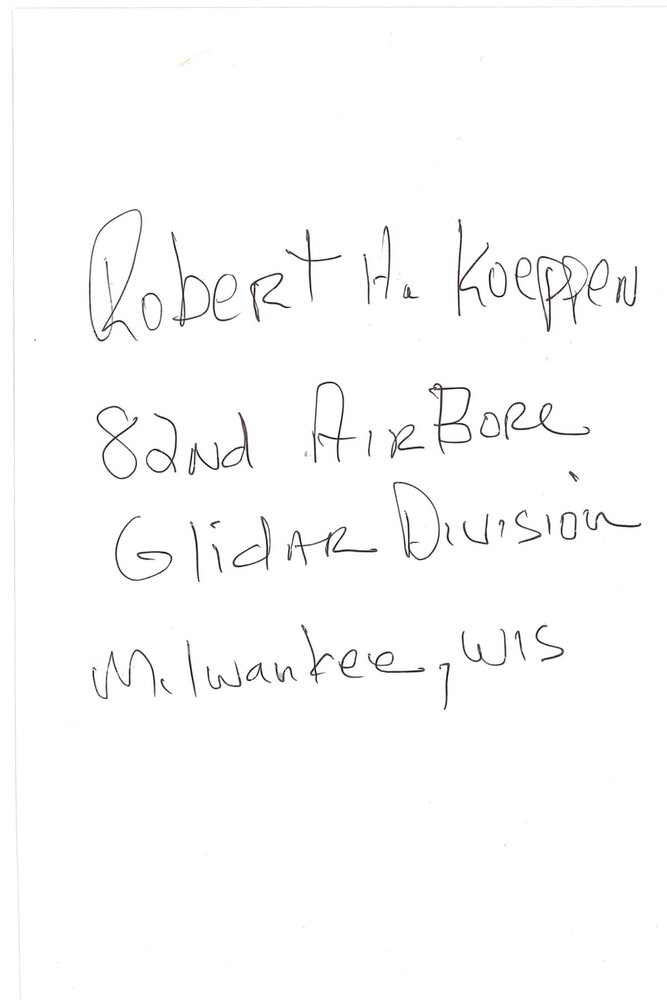 Robert H. Koeppen
82nd AirBore
Glidar Division
Milwaukee, WIS